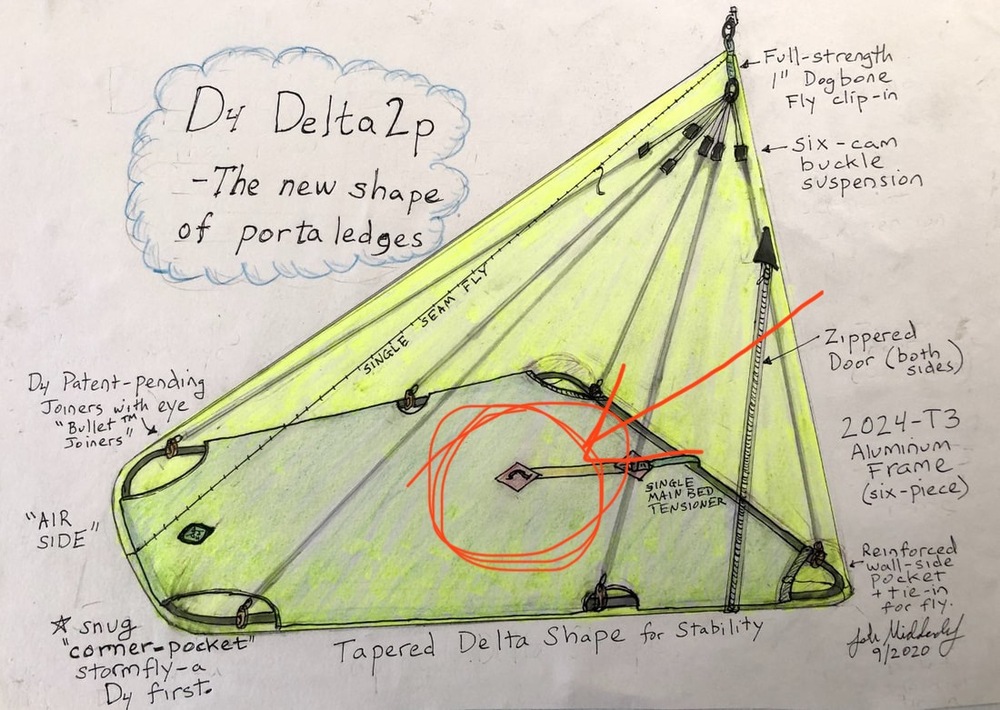 D4 Delta2p
-The new shape
of portaledges
Full-strength
1" Dogbone
Fly clip-in
six-cam
buckle
suspension
SINGLE SEAM FLY
Zippered
Door (both
sides)
D4 Patent-pending
Joiners with eye
"Bullet™
Joiners"
2024-T3
Aluminum
Frame
(six-piece)
SINGLE
MAIN BED
TENSIONER
"AIR
SIDE"
D4
Reinforced
wall-side
pocket
+ tie-in
for fly.
☆ snug
"corner-pocket"
stormfly-a
D4 first.
Tapered Delta Shape for Stability
9/2020